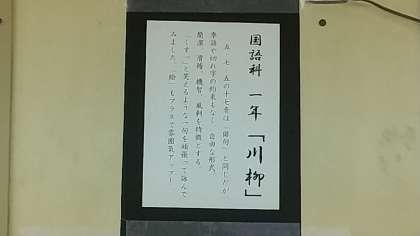 国語科 一年 「川柳」
五・七・五の十七音は「俳句」と同じだが、
季語や切れ字の約束もなく、自由な形式。
簡潔、滑稽、機智、風刺を特徴とする。
「くすっ」と笑えるような一句を頑張って詠んで
みました。「絵」もプラスで雰囲気アップ！